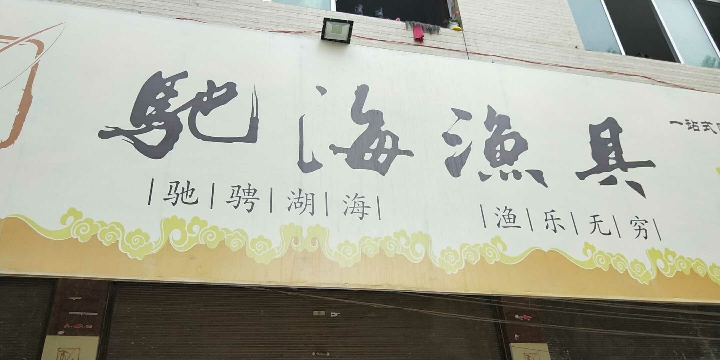 馳海漁具
一站式
|驰|骋|湖|海|
|渔|乐|无|穷|